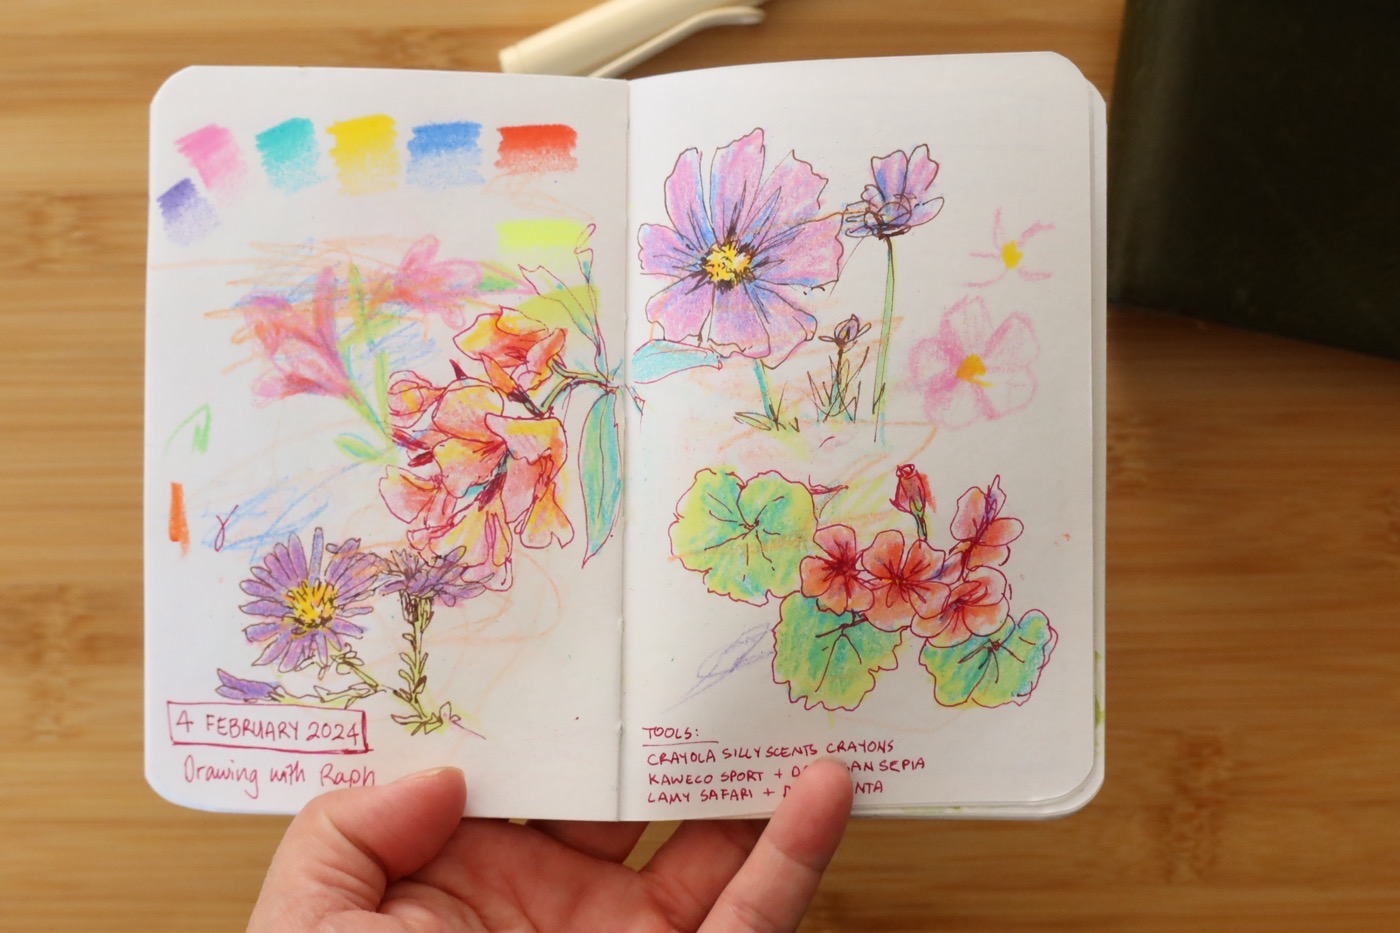 4 FEBRUARY 2024
Drawing with Raph
TOOLS:
CRAYOLA SILLY SCENTS CRAYONS
KAWECO SPORT + SEPIA
LAMY SAFARI +